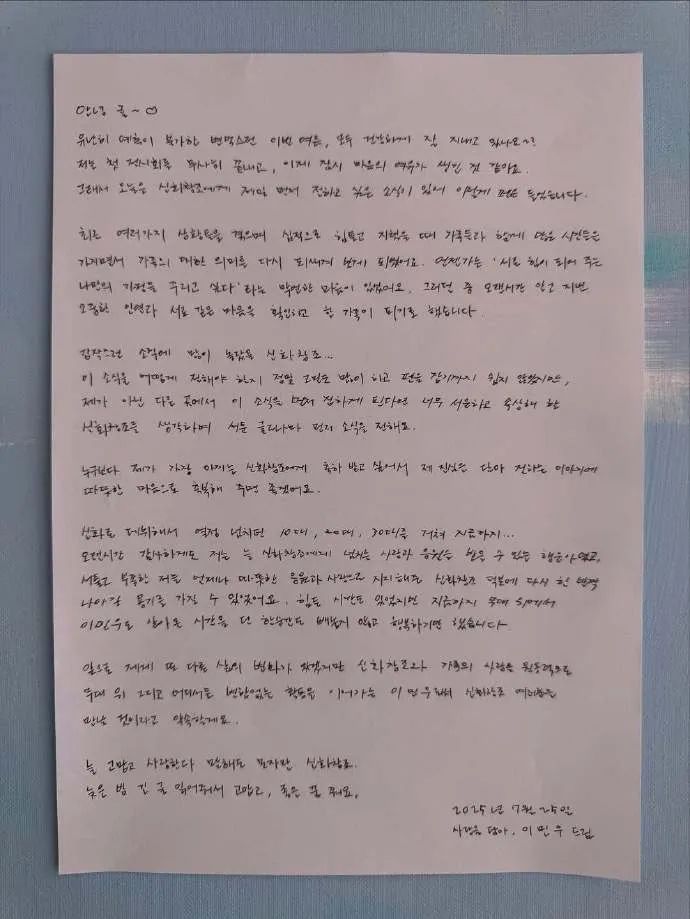 안녕 귤~♡
유난히 예측이 불가한 변덕스런 이번 여름, 모두 건강하게 잘 지내고 있나요~?
저는 첫 전시회를 무사히 끝내고, 이제 잠시 마음의 여유가 생긴 것 같아요.
그래서 오늘은 신화창조에게 제일 먼저 전하고 싶은 소식이 있어 이렇게 펜을 들었습니다.
최근 여러가지 상황들을 겪으며 심적으로 힘들고 지쳤을 때 가족들과 함께 많은 시간들을
가지면서 가족의 대한 의미를 다시 되새겨 보게 되었어요. 언젠가는 '서로 힘이 되어 주는
나만의 가정을 꾸리고 싶다'라는 막연한 마음이 있었어요. 그러던 중 오랜시간 알고 지낸
소중한 인연과 서로 같은 마음을 확인하고 한 가족이 되기로 했습니다.
갑작스런 소식에 많이 놀랐을 신화창조...
이 소식을 어떻게 전해야 하지 정말 고민도 많이 하고 펜을 잡기까지 쉽지 않았지만,
제가 아닌 다른 곳에서 이 소식을 먼저 접하게 된다면 너무 서운하고 속상해 할
신화창조를 생각하며 서툰 글로나마 먼저 소식을 전해요.
누구보다 제가 가장 아끼는 신화창조에게 축하 받고 싶어서 제 진심을 담아 전하는 이야기에
따뜻한 마음으로 축복해 주면 좋겠어요.
신화로 데뷔해서 열정 넘치던 10대, 20대, 30대를 거쳐 지금까지...
오랜시간 감사하게도 저는 늘 신화창조에게 넘치는 사랑과 응원을 받을 수 있는 행운아였고,
서툴고 부족한 저를 언제나 따뜻한 응원과 사랑으로 지지해준 신화창조 덕분에 다시 한 번 더
나아갈 용기를 가질 수 있었어요. 힘든 시간도 있었지만 지금까지 무대 위에서
이민우로 살아온 시간을 단 한순간도 빼놓지 않고 행복하기만 했습니다.
앞으로 제게 또 다른 삶의 변화가 있겠지만 신화창조와 가족의 사랑을 원동력으로
무대 위 그리고 어디서든 변함없는 활동을 이어가는 이민우로써 신화창조 여러분을
만날 것이라고 약속할게요.
늘 고맙고 사랑한다 말해도 모자란 신화창조.
늦은 밤 긴 글 읽어줘서 고맙고, 좋은 꿈 꿔요.
2025년 7월 25일
사랑을 담아, 이민우 드림